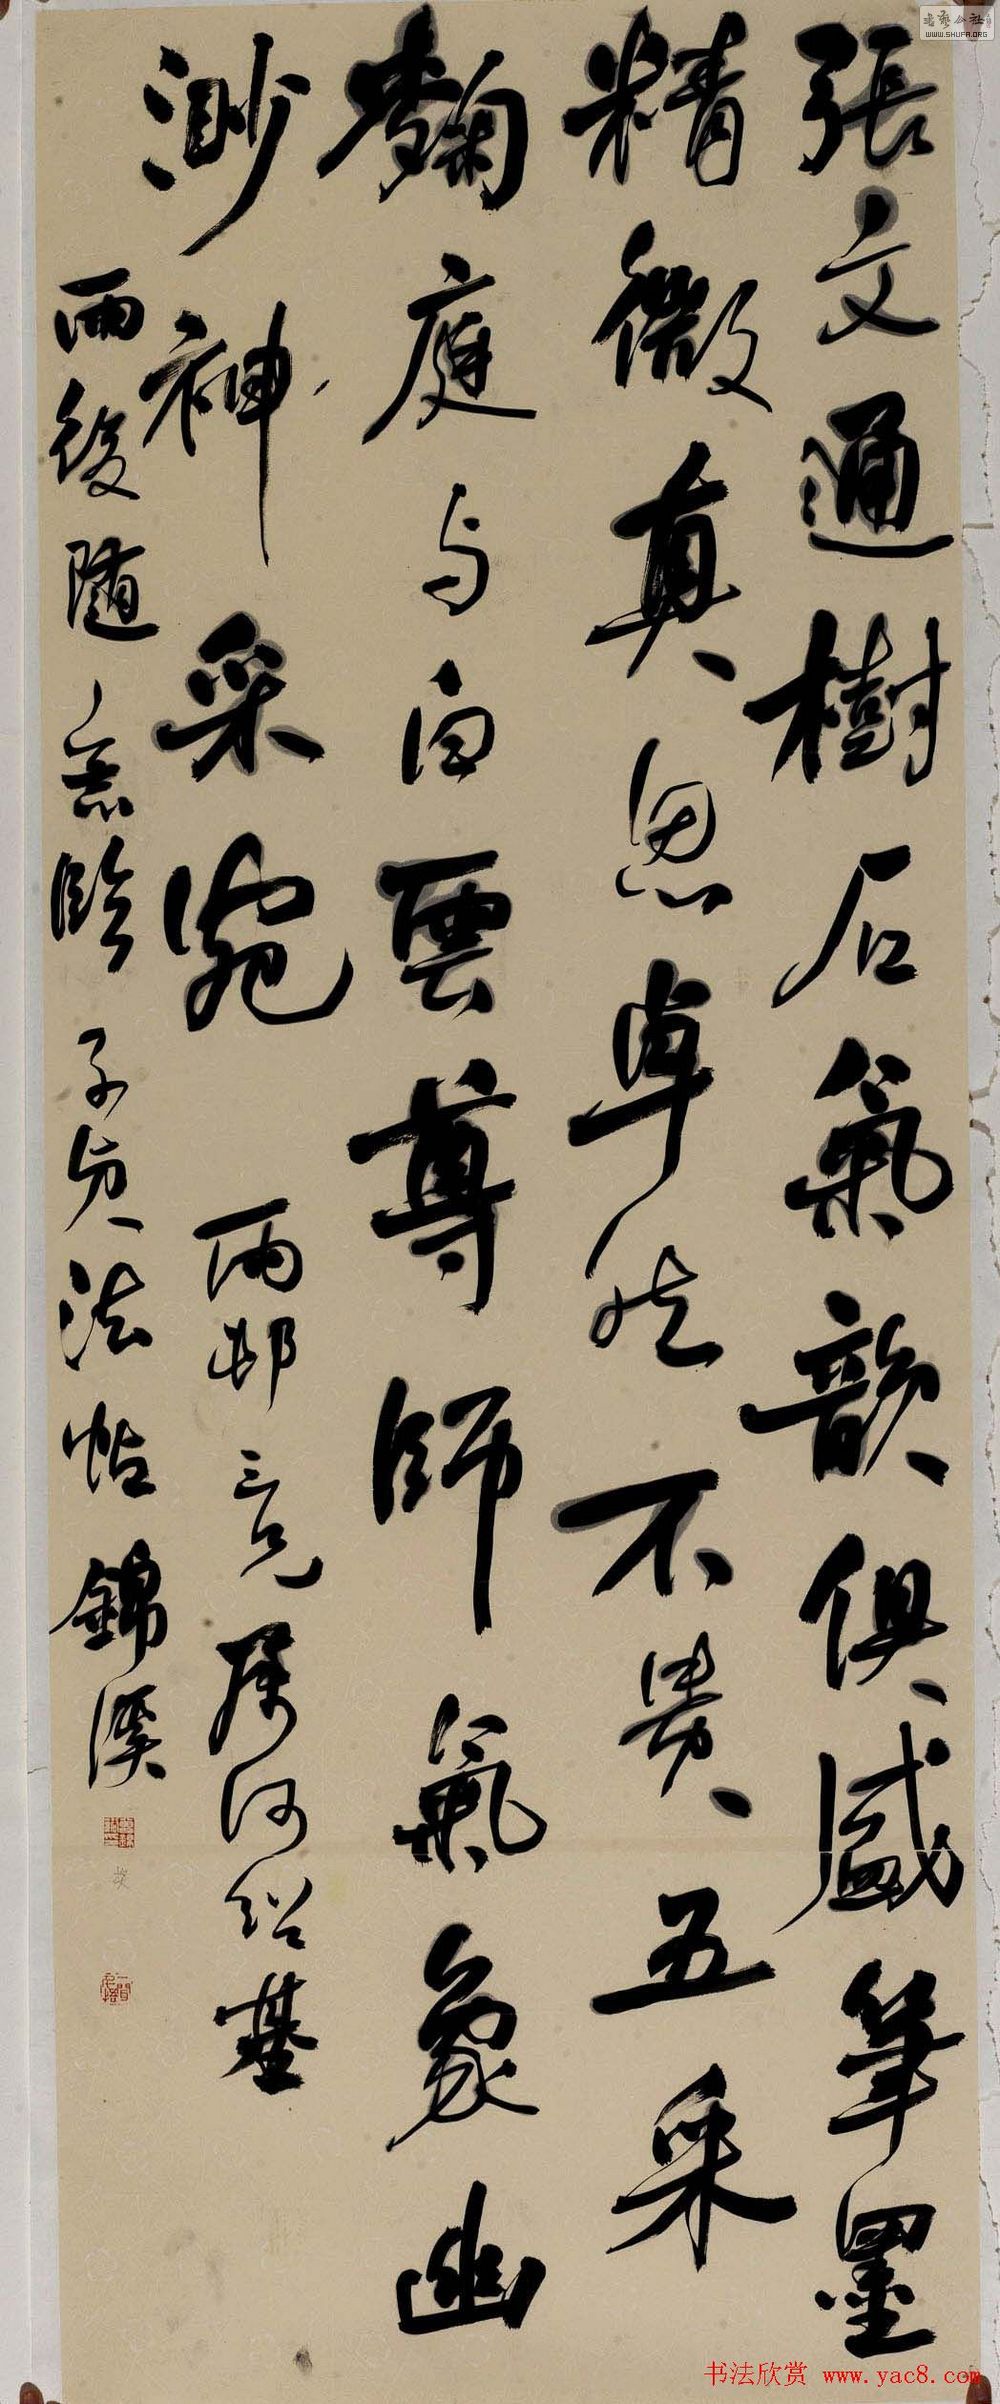 張文通樹石氣韻俱盛筆墨
精微真思卓然不貴五采
麴庭与白雲尊師氣象幽
渺神采宛
雨邨三兄属何绍基
雨後随意臨子貞法帖錦溪
書藝公社
WWW.SHUFA.ORG
书法欣赏 www.yac8.com